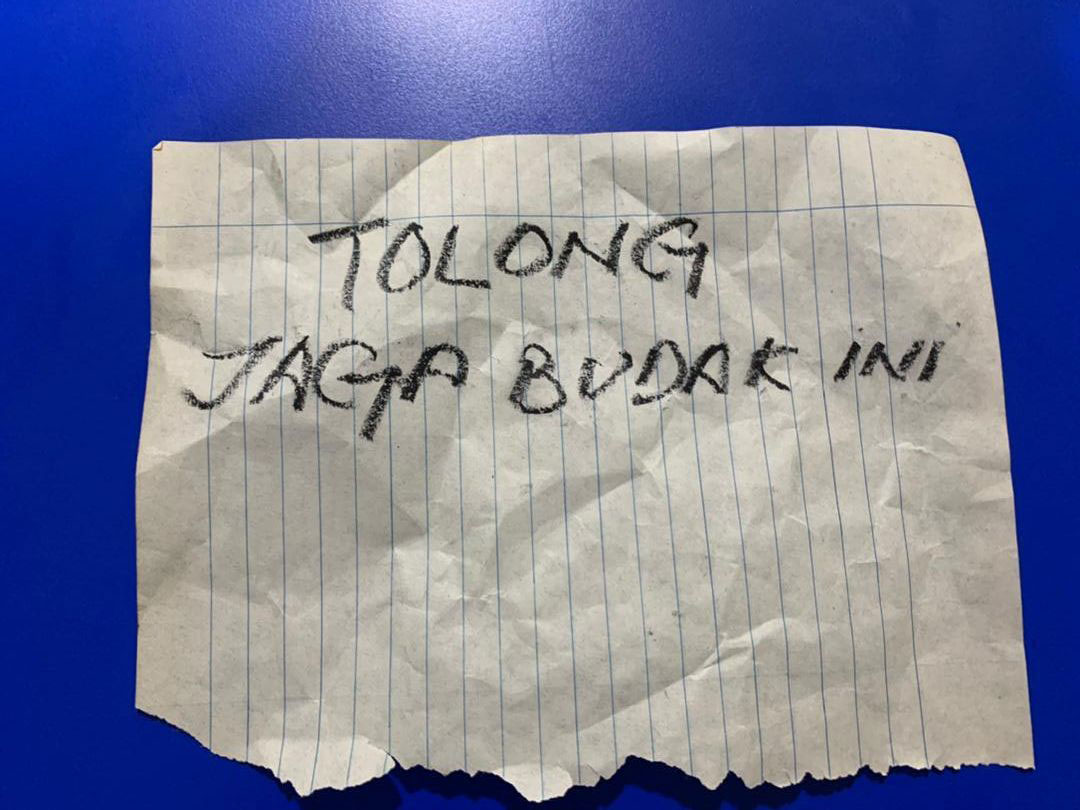 TOLONG
JAGA BUDAK INI